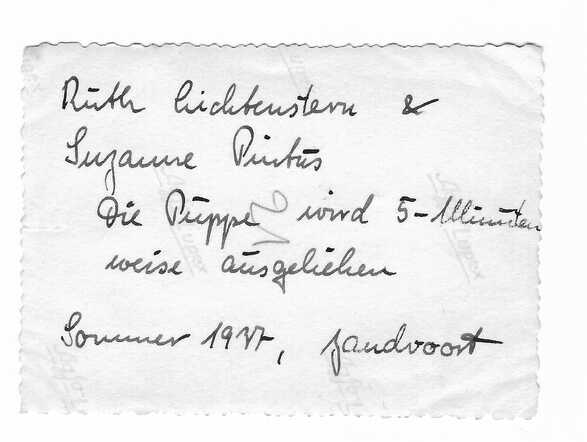 Ruth Lichtenstern &
Suzanne Pintus
Die Puppe wird 5-Minuten
weise ausgeliehen
Sommer 1937, Zandvoort